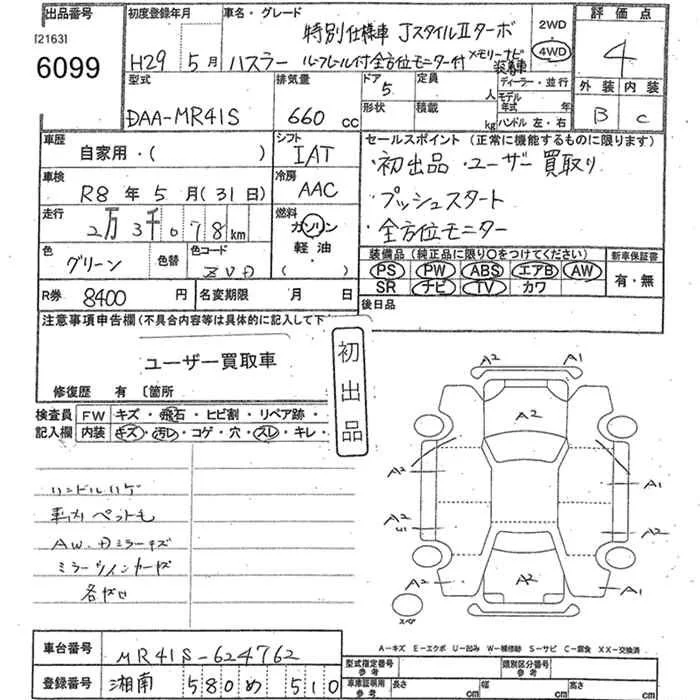 出品番号 初度登録年月 車名・グレード 2WD 評価点
[2163] 特別仕様車 JスタイルⅡターボ 4WD 4
6099 H29 5月 ハスラー ルーフレール付全方位モニター付 メモリーナビ装着車
型式 排気量 ドア 5 定員 人 ディーラー・並行 外装 内装
DAA-MR41S 660cc 形状 積載 kg モデル年式 年 B C
ハンドル 左・右
車歴 シフト セールスポイント (正常に機能するものに限ります)
自家用・( ) IAT ・初出品・ユーザー買取り
車検 冷房
R8年5月(31日) AAC ・プッシュスタート
走行 燃料
2万3千078km ガソリン ・全方位モニター
色 色替 色コード 軽油・ 装備品 (純正品に限り○をつけてください) 新車保証書
グリーン ZVD ( ) PS PW ABS エアB AW 有・無
SR ナビ TV カワ
R券 8400円 名変期限 月 日 後日品
注意事項申告欄(不具合内容等は具体的に記入して下
ユーザー買取車
初出品
修復歴 有 〔箇所
検査員 FW キズ・飛石・ヒビ割・リペア跡・
記入欄 内装 キズ・汚レ・コゲ・穴・スレ・キレ・
ハンドルハゲ
車内ペット毛
AW.Dミラーキズ
ミラーウインカーキズ
各ガセ
A2 A1
A2
A2 A1
A2 U1 A2
A2 A2 A1
スペア
A-キズ E-エクボ U-凹み W-補修跡 S-サビ C-腐食 XX-交換済
車台番号 MR41S-624762 型式指定番号 参考 類別区分番号 参考
登録番号 湘南 580 め 510 車庫証明用 参考 長さ cm 幅 cm 高さ cm